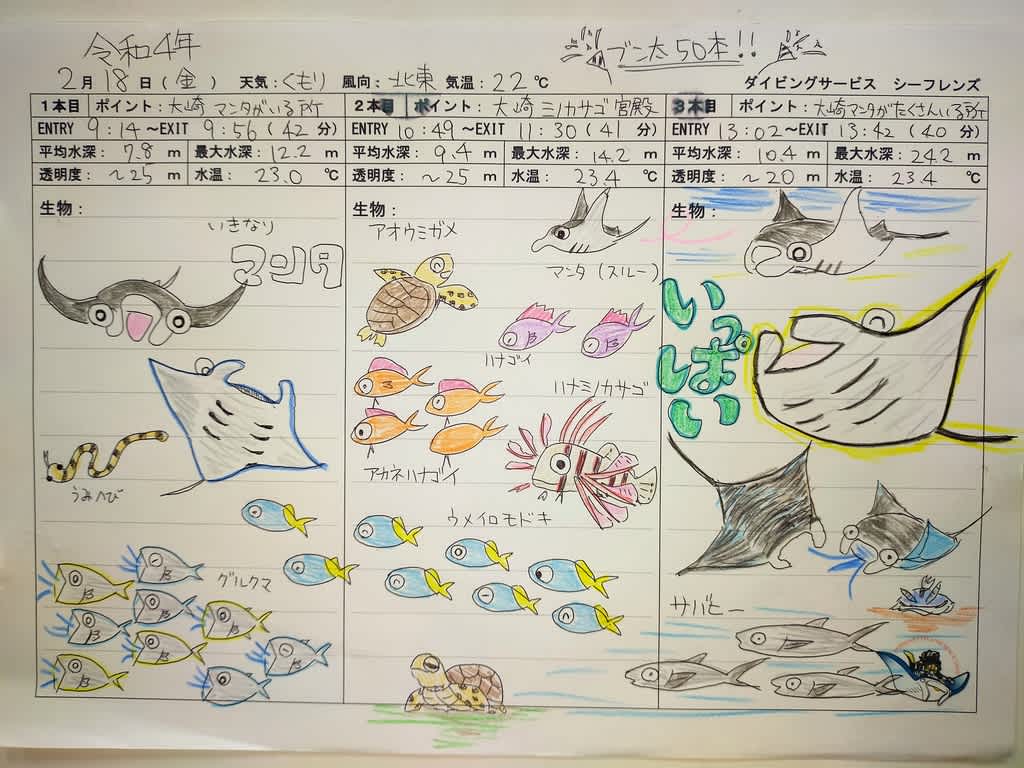 令和4年
ブン太50本!!
2月18日(金) 天気:くもり 風向:北東 気温:22℃ ダイビングサービス シーフレンズ
1本目 ポイント:大崎 マンタがいる所
ENTRY 9:14~EXIT 9:56(42分)
平均水深:7.8m 最大水深:12.2m
透明度:~25m 水温:23.0℃
生物:
いきなり
マンタ
うみへび
グルクマ
2本目 ポイント:大崎 ミノカサゴ宮殿
ENTRY 10:49~EXIT 11:30(41分)
平均水深:9.4m 最大水深:14.2m
透明度:~25m 水温:23.4℃
生物:
アオウミガメ
マンタ(スルー)
ハナゴイ
ハナミノカサゴ
アカネハナゴイ
ウメイロモドキ
3本目 ポイント:大崎マンタがたくさんいる所
ENTRY 13:02~EXIT 13:42(40分)
平均水深:10.4m 最大水深:24.2m
透明度:~20m 水温:23.4℃
生物:
いっぱい
サバヒー